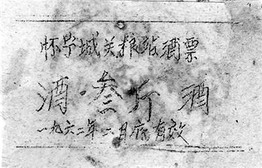 怀宁城关粮站酒票
酒·叁斤 酒
一九六二年二月底有效